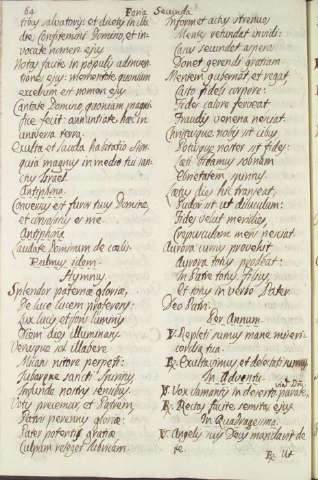 64
Feria Secunda
tibus salvatoris: et dicetis in illa
die, Confitemini Domino, et in-
vocate nomen ejus
Notas facite in populis adinven-
tiones ejus: mementote quoniam
excelsum est nomen ejus
Cantate Domino, quoniam magni-
fice fecit: annuntiate hoc in
universa terra.
Exulta et lauda habitatio Sion
quia magnus in medio tui san-
ctus Israel.
Antiphona.
Conversus est furor tuus Domine,
et consolatus es me.
Antiphona
Laudate Dominum de coelis.
Psalmus idem.
Hymnus
Splendor paternae gloriae,
De luce lucem proferens:
Lux lucis et fons luminis
Diem dies illuminans.
Verusque sol illabere
Micans nitore perpeti:
Jubarque sancti Spiritus
Infunde nostris sensibus.
Votis vocemus et Patrem,
Patrem perennis gloriae:
Pater potentis gratiae
Culpam releget lubricam.
Informet actus strenuos
Dentes retundat invidi:
Casus secundet asperos
Donet gerendi gratiam
Mentem gubernet et regat
Casto fideli corpore:
Fides calore ferveat
Fraudis venena nesciat.
Christusque nobis sit cibus
Potusque noster sit fides:
Laeti bibamus sobriam
Ebrietatem spiritus.
Laetus dies hic transeat,
Pudor sit ut diluculum:
Fides velut meridies,
Crepusculum mens nesciat.
Aurora cursus provehit
Aurora totus prodeat:
In Patre totus Filius,
Et totus in verbo Pater.
Deo Patri
Per Annum.
V. Repleti sumus mane miseri-
cordia tua.
R. Exultavimus et delectati sumus
In Adventu.
V. Vox clamantis in deserto, parate
viam Dni,
R. Rectas facite semitas ejus
In Quadragesima.
V. Angelis suis Deus mandavit de
te.
R. Ut